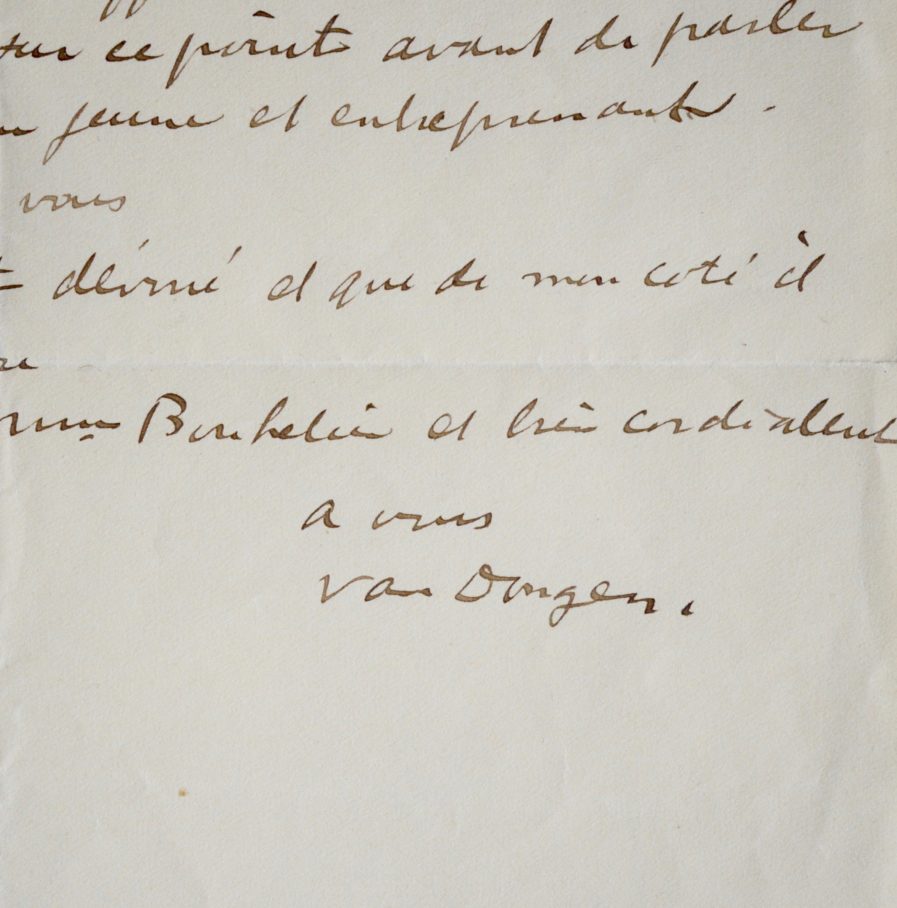 sur ce point avant de parler
jeune et entreprenant.
vous
et que de mon coté il
Bouhelier et très cordialent
a vous
van Dongen.